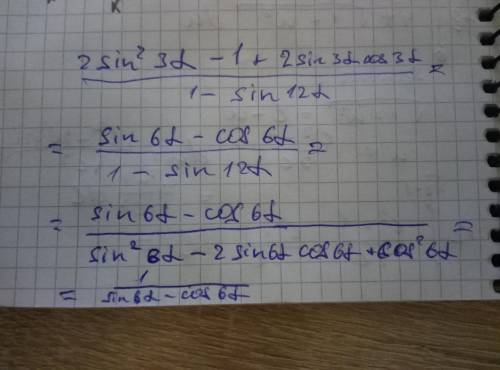 2sin² 3α - 1 + 2sin 3α cos 3α =
1 - sin 12α
= sin 6α - cos 6α =
1 - sin 12α
= sin 6α - cos 6α =
sin² 6α - 2 sin 6α cos 6α + cos² 6α
= 1
sin 6α - cos 6α